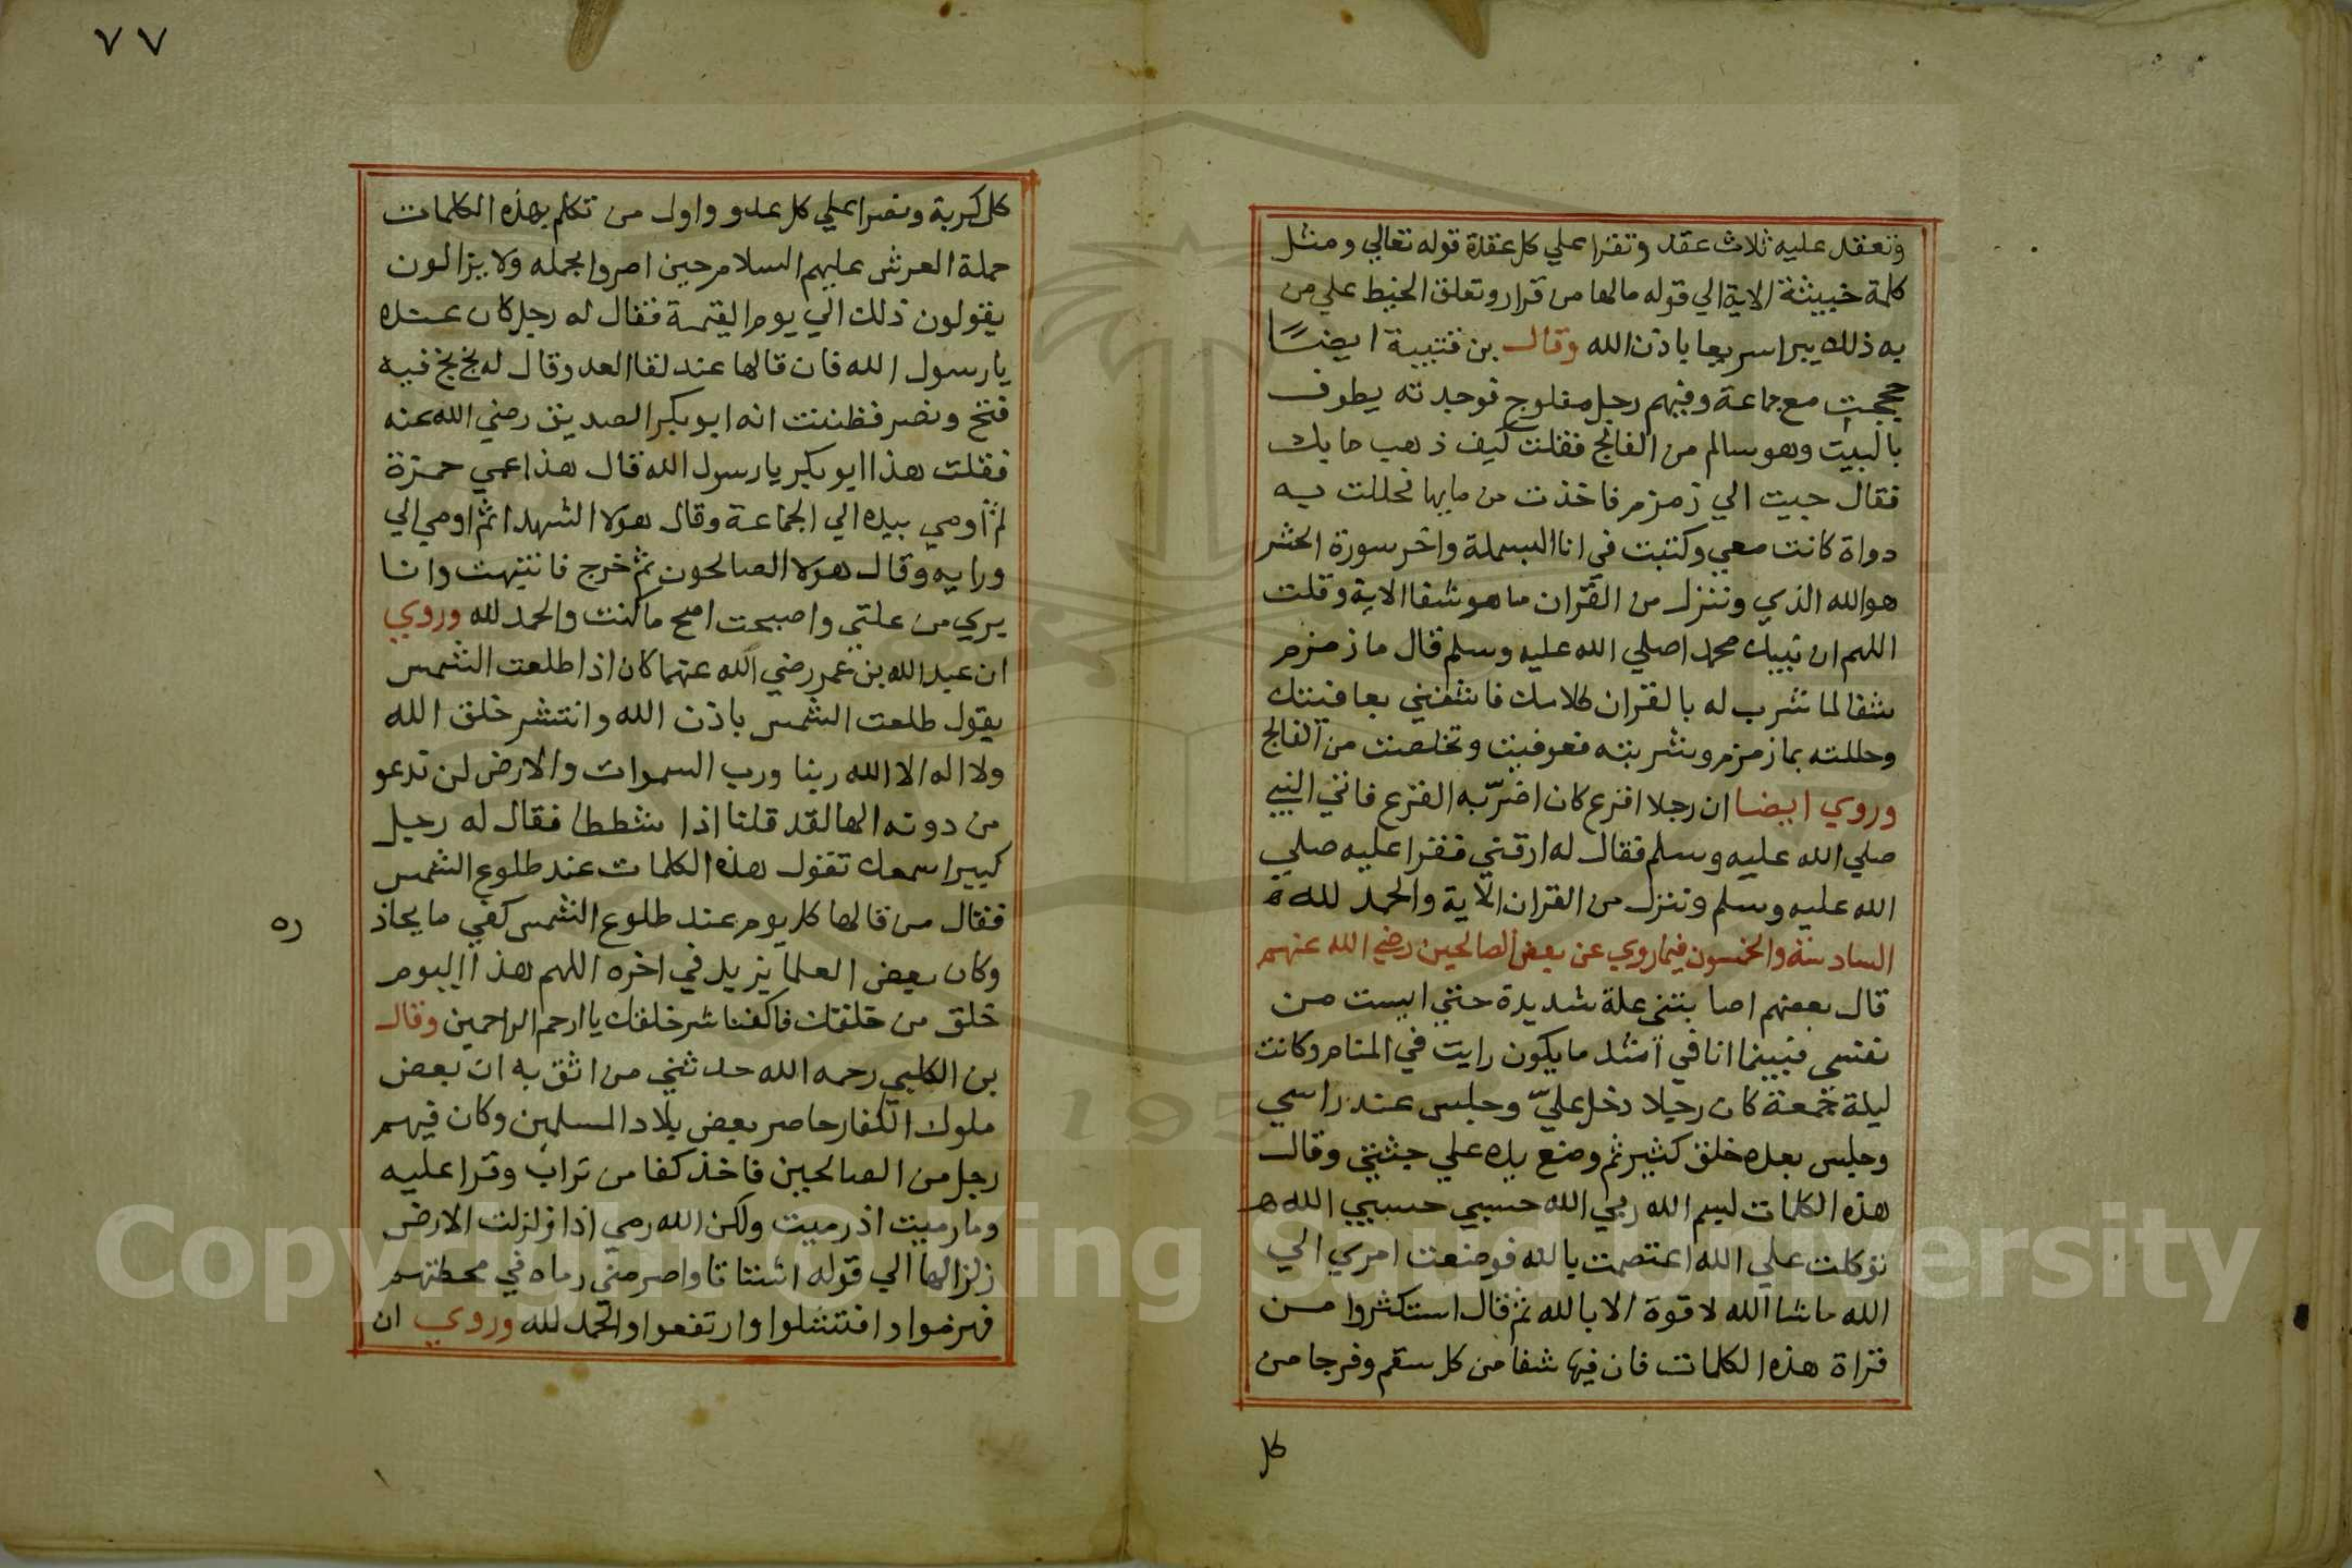 وتعقد عليه ثلاث عقد وتقرا علي كل عقدة قوله تعالي ومثل
كلمة خبيثة الاية الي قوله مالها من قرار وتعلق الخيط علي من
به ذلك يبرا سريعا باذن الله وقال بن قتيبة ايضًا
حججت مع جماعة وفيهم رجل مفلوج فوجدته يطوف
بالبيت وهو سالم من الفالج فقلت كيف ذهب ما بك
فقال جيت الي زمزم فاخذت من مايها فحللت به
دواة كانت معي وكتبت في انا البسملة واخر سورة الحشر
هو الله الذي وننزل من القران ما هو شفا الاية وقلت
اللهم ان نبيك محمدا صلي الله عليه وسلم قال ما زمزم
شفا لما شرب له بالقران كلامك فاشفني بعافيتك
وحللته بما زمزم وشربته فعوفيت وتخلصت من الفالج
وروي ايضا ان رجلا اقرع كان اضرّ به القرع فاتي النبي
صلي الله عليه وسلم فقال له ارقني فقرا عليه صلي
الله عليه وسلم وننزل من القران الاية والحمد لله ه
السادسة والخمسون فيما روي عن بعض الصالحين رضي الله عنهم
قال بعضهم اصابتني علة شديدة حتي ايست من
نفسي فبينما انا في اشد ما يكون رايت في المنام وكانت
ليلة جمعة كان رجلا دخل عليّ وجلس عند راسي
وجلس بعده خلق كثير ثم وضع يده علي جثتي وقال
هذه الكلمات لبسم الله ربي الله حسبي حسبي الله ه
توكلت علي الله اعتصمت بالله فوضعت امري الي
الله ماشا الله لا قوة الا بالله ثم قال استكثروا من
قراة هذه الكلمات فان فيها شفا من كل سقم وفرجا من
كل
٧٧
كل كربة ونصرا علي كل عدو واول من تكلم بهذه الكلمات
حملة العرش عليهم السلام حين امروا بحمله ولا يزالون
يقولون ذلك الي يوم القيمة فقال له رجل كان عنده
يا رسول الله فان قالها عند لقا العدو قال له بخ بخ فيه
فتح ونصر فظننت انه ابو بكر الصديق رضي الله عنه
فقلت هذا ابو بكر يا رسول الله قال هذا عمي حمزة
ثم أومي بيده الي الجماعة وقال هولا الشهدا ثم اومي الي
ورايه وقال هولا الصالحون ثم خرج فانتبهت وانا
بري من علتي واصبحت اصح ما كنت والحمد لله وروي
ان عبد الله بن عمر رضي الله عنهما كان اذا طلعت الشمس
يقول طلعت الشمس باذن الله وانتشر خلق الله
ولا اله الا الله ربنا ورب السموات والارض لن ندعو
من دونه الها لقد قلنا اذا شططا فقال له رجل
كبير اسمعك تقول هذه الكلمات عند طلوع الشمس
فقال من قالها كل يوم عند طلوع الشمس كفي ما يحاذ
ره
وكان بعض العلما يزيد في اخره اللهم هذا اليوم
خلق من خلقك فاكفنا شر خلقك يا ارحم الراحمين وقال
بن الكلبي رحمه الله حدثني من اثق به ان بعض
ملوك الكفار حاصر بعض بلاد المسلمين وكان فيهم
رجل من الصالحين فاخذ كفا من تراب وقرا عليه
وما رميت اذ رميت ولكن الله رمي اذا زلزلت الارض
زلزالها الي قوله اشتاتا وامر متي رماه في محطتهم
فهرموا وافتشلوا وارتفعوا والحمد لله وروي ان
Copyright © King Saud University
195